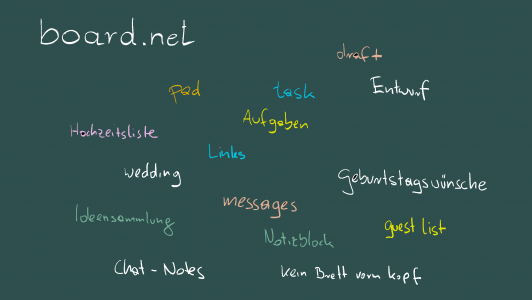 board.net
draft
pad
task
Entwurf
Aufgaben
Hochzeitsliste
Links
wedding
Geburtstagswünsche
messages
Ideensammlung
guest list
Notizblock
Chat - Notes
kein Brett vorm Kopf